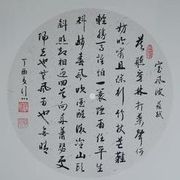 定風波 蘇軾
莫聽穿林打葉聲何
妨吟嘯且徐行竹杖芒鞋
輕勝馬誰怕一蓑煙雨任平生
料峭春風吹酒醒微冷山頭
斜照却相迎回首向來蕭瑟處
歸去也無風雨也無晴
丁酉夏